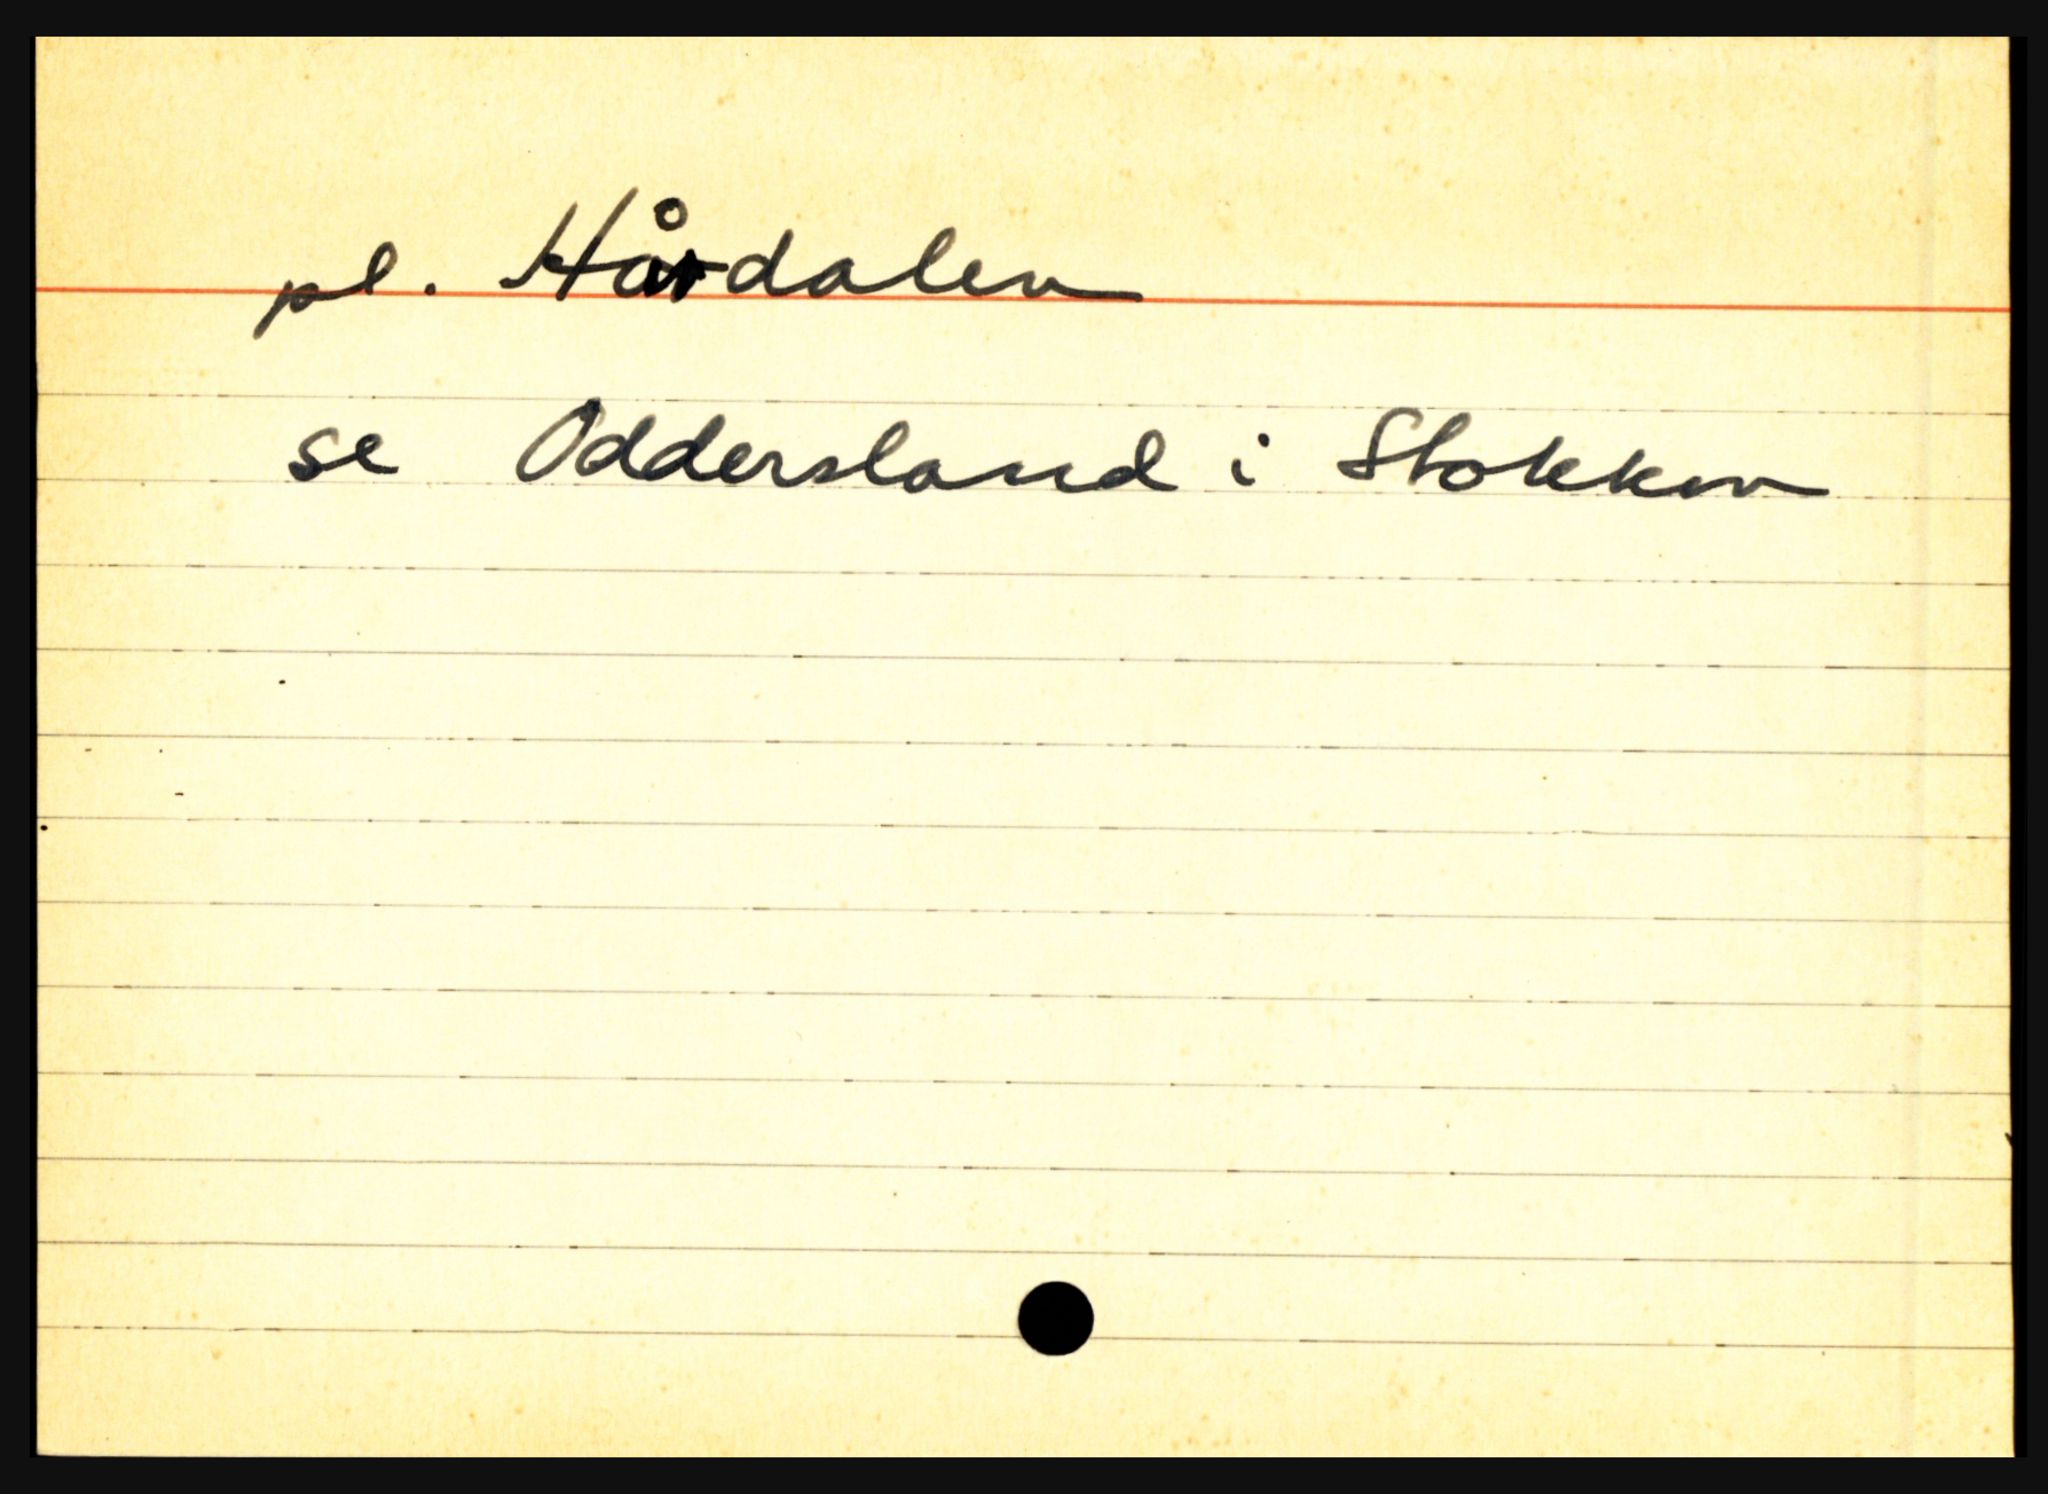 pl. Hårdalen
se Oddersland i Stokken